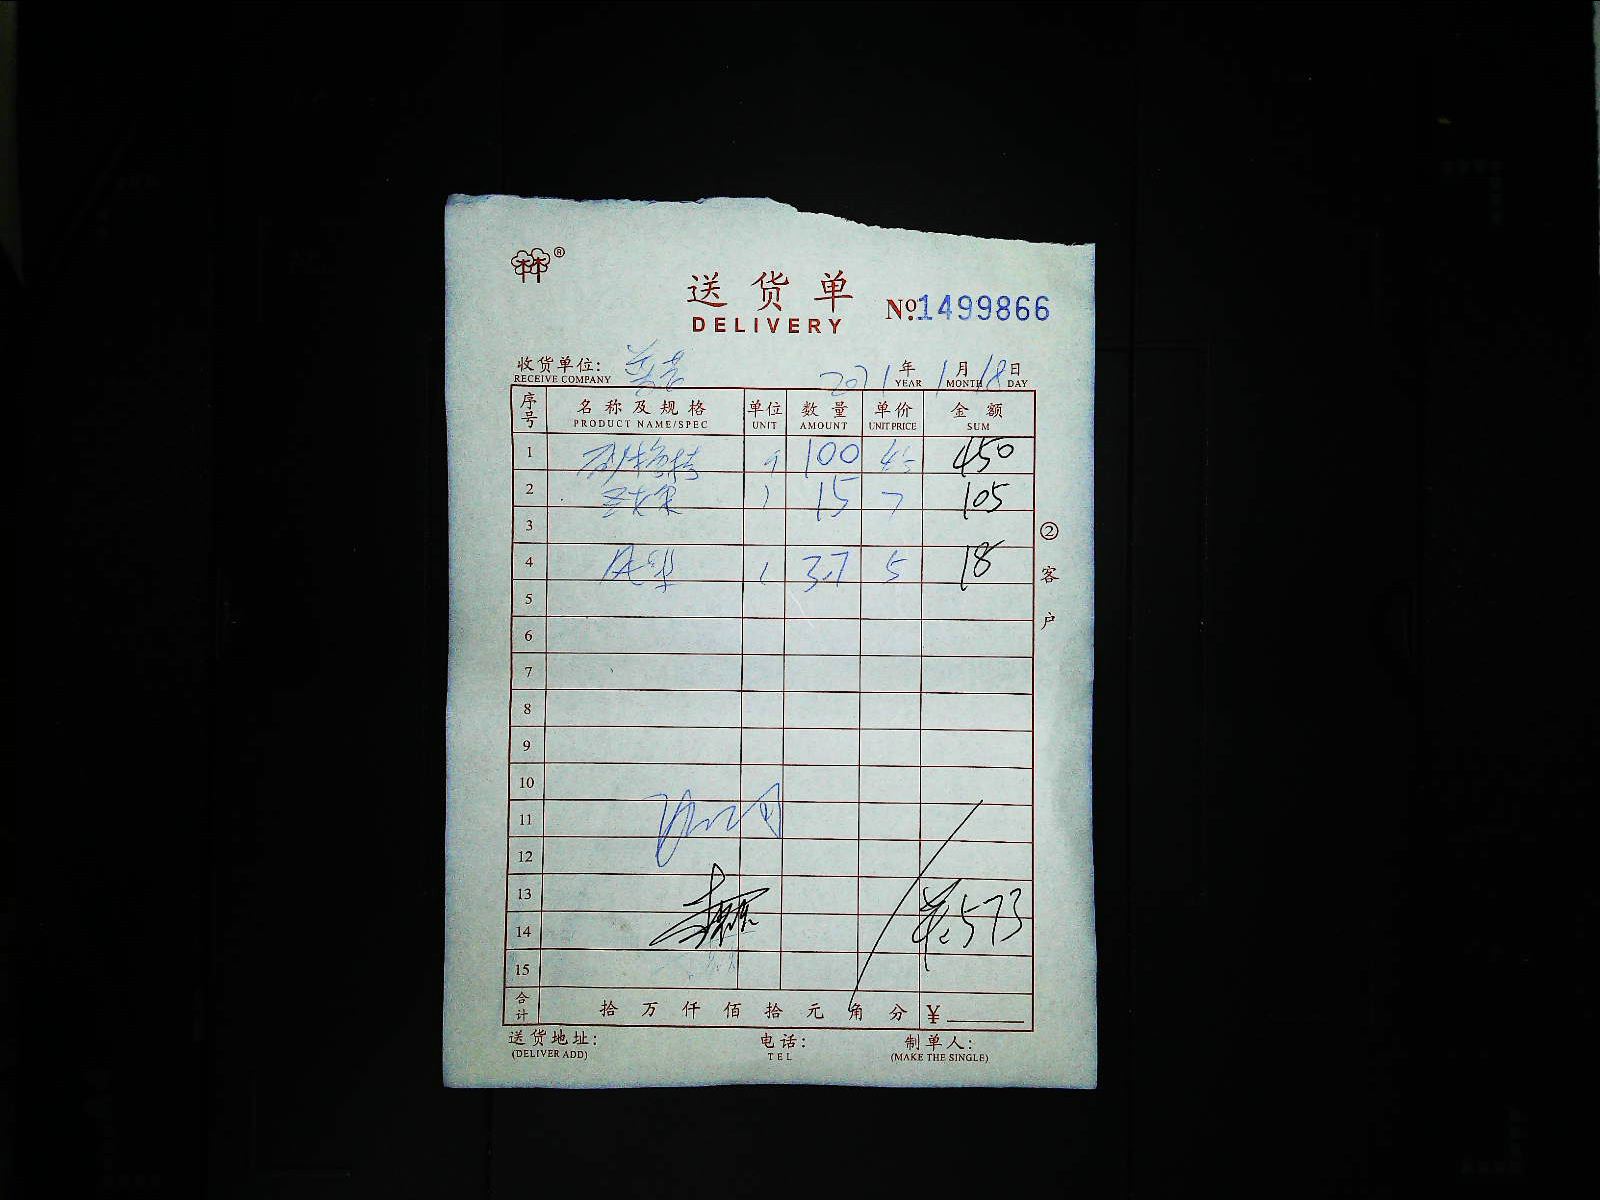 送货单
DELIVERY
№:1499866
收货单位:
RECEIVE COMPANY
2021年 1月 18日
YEAR MONTH DAY
序号 名称及规格 单位 数量 单价 金额
PRODUCT NAME/SPEC UNIT AMOUNT UNIT PRICE SUM
1 100 45 450
2 15 7 105
3
4 3.7 5 18
5
6
7
8
9
10
11
12
13 573
14
15
合计 拾 万 仟 佰 拾 元 角 分 ¥
送货地址: 电话: 制单人:
(DELIVER ADD) TEL (MAKE THE SINGLE)
②客户